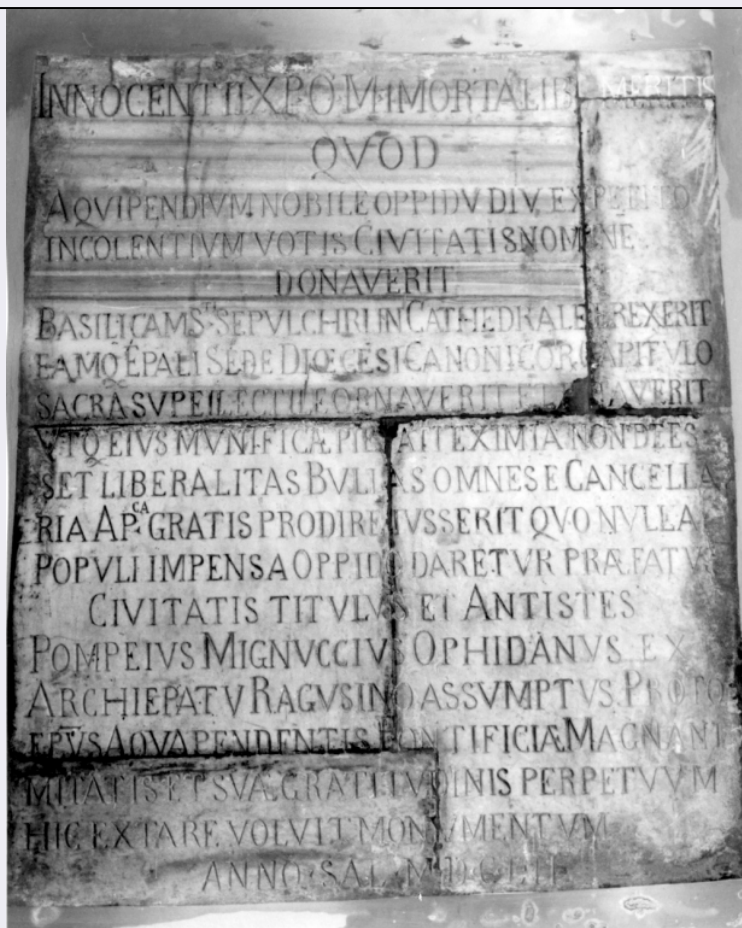 INNOCENTII·X·P·O·M·IMORTALIB MERITIS
QVOD
AQVIPENDIVM NOBILE OPPIDV DIV EXPETITO
INCOLENTIVM VOTIS CIVITATIS NOMINE
DONAVERIT
BASILICAM S.TI SEPVLCHRI IN CATHEDRALE EREXERIT
EAMQ EPALI SEDE DIŒCESI CANONICOR CAPITVLO
SACRA SVPELLECTILE ORNAVERIT ET
VTQ EIVS MVNIFICÆ PIETATI EXIMIA NON DEES
SET LIBERALITAS BVLLAS OMNES E CANCELLA
RIA AP.CA GRATIS PRODIRE IVSSERIT QVO NVLLA
POPVLI IMPENSA OPPIDO DARETVR PRÆFATVS
CIVITATIS TITVLVS ET ANTISTES
POMPEIVS MIGNVCCIVS OPHIDANVS EX
ARCHIEPATV RAGVSINO ASSVMPTVS PROTO
EPVS AQVAPENDENTIS PONTIFICIÆ MAGNANI
MITATIS ET SVÆ GRATITVDINIS PERPETVVM
HIC EXTARE VOLVIT MONVMENTVM
ANNO SAL